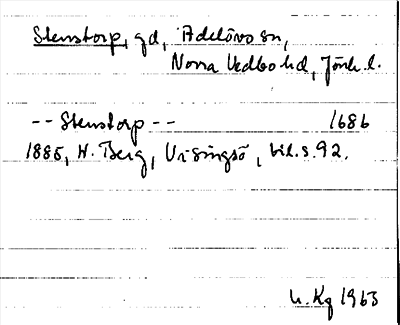 Stenstorp, gd, Adelövs sn,
Norra Vedbo hd, Jönk. l.
-- Stenstorp -- 1686
1885, H. Berg, Visingsö, bil. s. 92.
u. Kg 1963